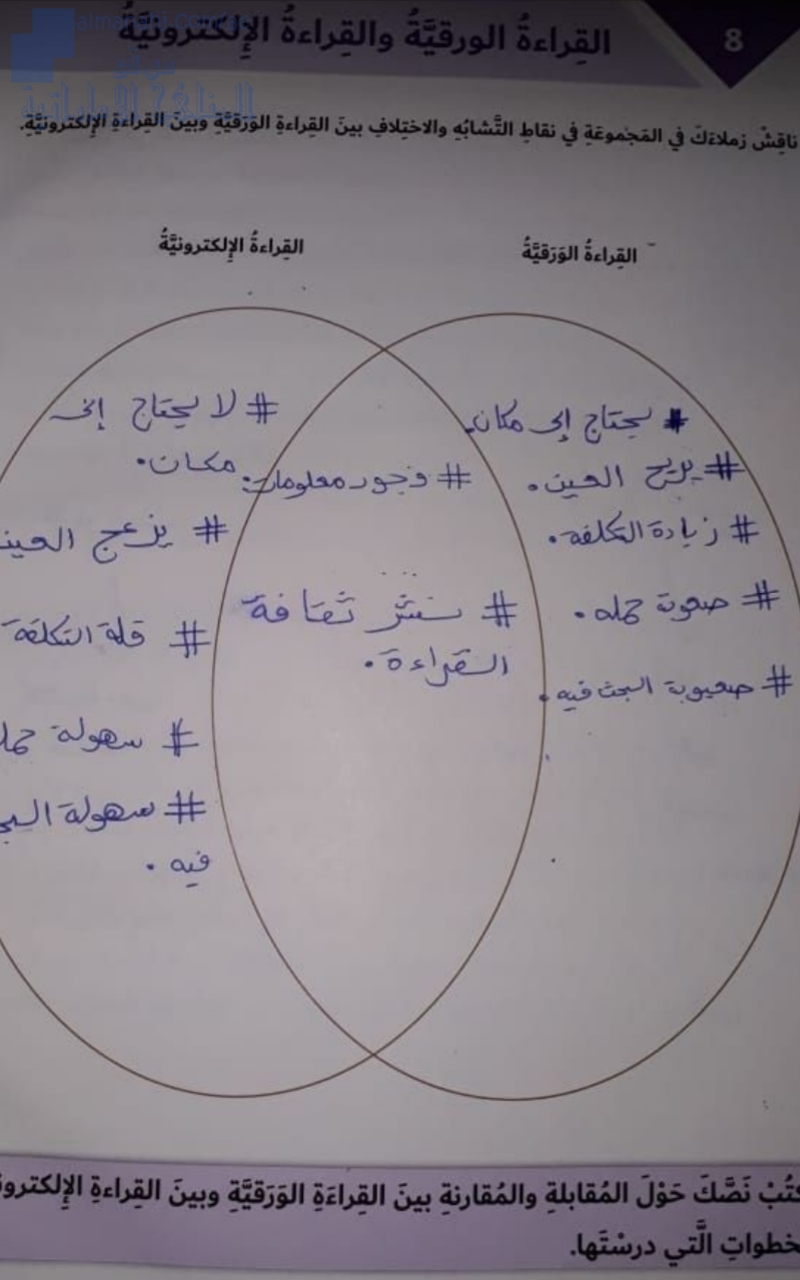 8
القِراءةُ الورقيَّةُ والقِراءةُ الإِلكترونيَّةُ
almanahj.com/ae
موقع
المناهج الإماراتية
ناقِشْ زملاءَكَ في المَجموعَةِ في نقاطِ التَّشابُهِ والاختِلافِ بينَ القِراءةِ الوَرَقيَّةِ وبينَ القراءةِ الإِلكترونيَّةِ.
القِراءةُ الوَرَقيَّةُ
# يحتاج إلى مكان.
# يريح العين.
# زيادة التكلفة.
# صعوبة حمله.
# صعيوبة البحث فيه.
# وجود معلومات.
# نشر ثقافة
القراءة.
القِراءةُ الإِلكترونيَّةُ
# لا يحتاج إلى
مكان.
# يزعج العين
# قلة التكلفة
# سهولة حمله
# سهولة البحث
فيه.
كتُبْ نَصَّكَ حَوْلَ المُقابلةِ والمُقارنةِ بينَ القِراءَةِ الوَرَقيَّةِ وبينَ القِراءةِ الإِلكترو
خطواتِ الَّتي درسْتَها.